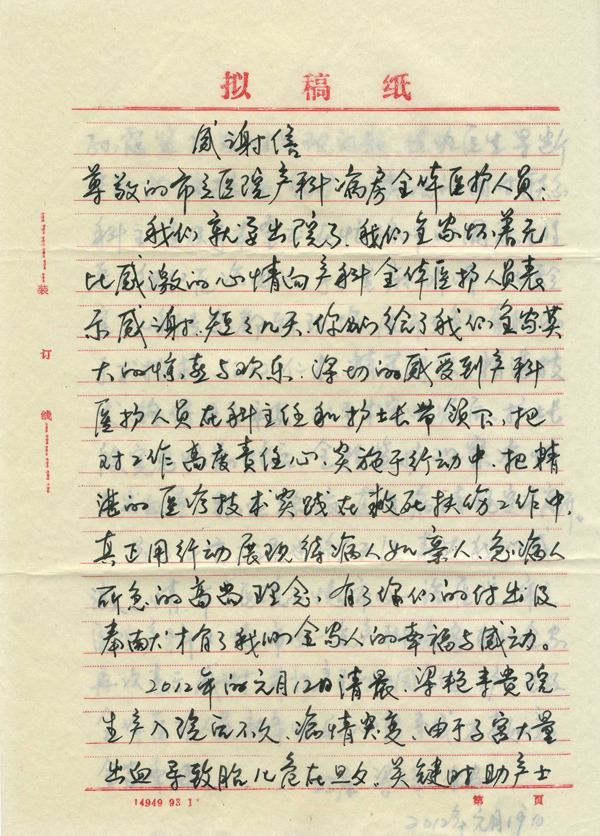 拟稿纸
感谢信
尊敬的市立医院产科病房全体医护人员:
我们就要出院了,我们全家怀着无
比感激的心情向产科全体医护人员表
示感谢。短短几天,你们给了我们全家莫
大的惊喜与欢乐,深切的感受到产科
医护人员在科主任和护士长带领下,把
对工作高度责任心,实施于行动中,把精
湛的医疗技术实践在救死扶伤工作中,
真正用行动展现待病人如亲人,急病人
所急的高尚理念,有了你们的付出及
奉献才有了我们全家人的幸福与感动。
2012年的元月12日清晨,梁艳来贵院
生产入院后不久,病情突变,由于子宫大量
出血导致胎儿危在旦夕,关键时助产士
装
订
线
14949 93 1
第 页
2012年元月19日